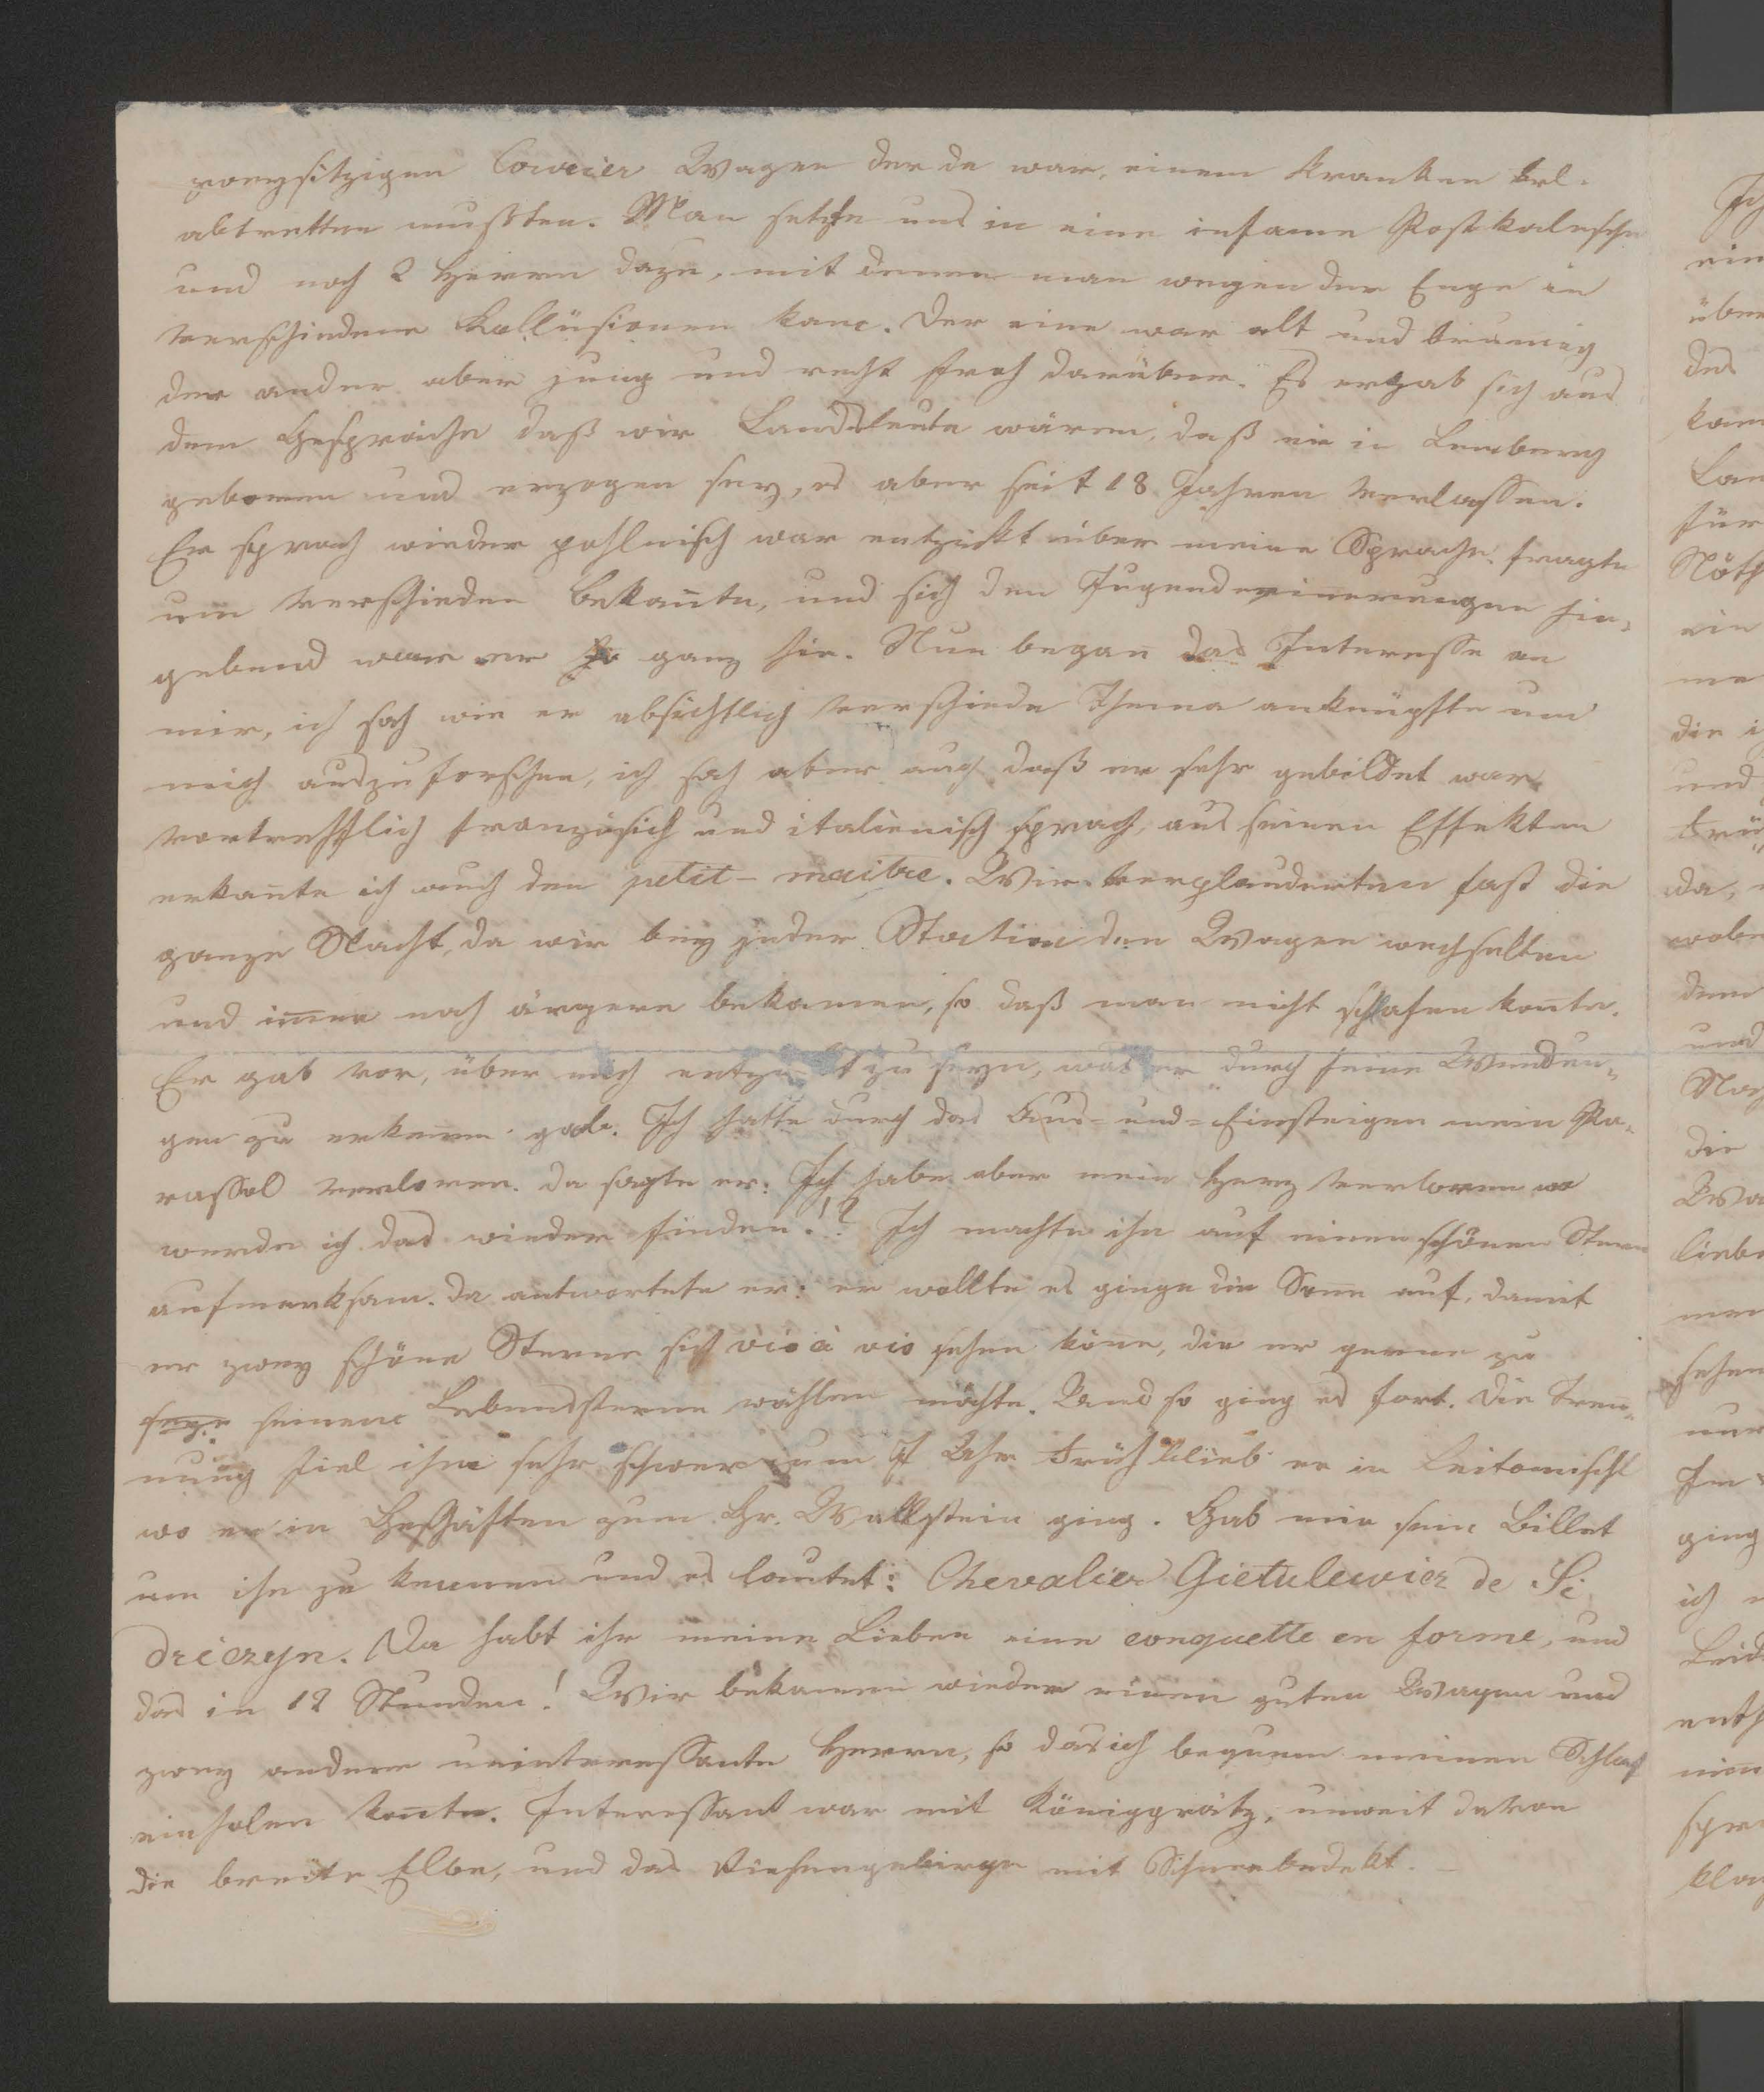 zweysitzigen Courier Wagen der da war, einem Kranken
abtretten mußten. Man setzte uns in eine infame Postkalesche
und noch 2 Herren dazu, mit denen man wegen der Enge in
verschiedene Kollüsionen kam. Der eine war alt und brumig
der ander aber jung und recht froh darüber. Es ergab sich aus
dem Gespräche daß wir Landsleute wären, daß er in Lemberg
geboren und erzogen sey, es aber seit 18 Jahren verlassen.
Er sprach wieder pohlnisch war entzückt über meine Sprache, fragte
um verschieden Bekannte, und sich den Jugenderinerungen hin-
gebend war er ganz hin. Nun began das Interesse an
mir, ich sah wie er absichtlich verschiede Thema anknüpfte um
mich auszuforschen, ich sah aber auch daß er sehr gebildet war
vortrefflich französich und italienisch sprach, aus seinen Effekten
erkante ich auch den petit-maitre. Wir verplauderten fast die
ganze Nacht, da wir bey jeder Station den Wagen wechselten
und imer noch ärgere bekamen, so daß man nicht schlafen konte.
Er gab vor, über mich entzückt zu seyn, was er durch seine Wendun-
gen zu erkenen gab. Ich hatte durch das Aus- und- Einsteigen mein Pa-
rassol verloren. da sagte er: Ich habe aber mein Herz verloren wo
werde ich das wieder finden!? Ich machte ihn auf einen schönen Stern
aufmerksam. da antwortete er: er wollte es ginge die Sonne auf, damit
er zwey schöne Sterne sich vis à vis sehen köne, die er gerne zu
seinem Lebenssterne wählen möchte. Und so ging es fort. Die Tren-
nung fiel ihm sehr schwer um 7 Uhr Früh blieb er in Leitomischl
wo er in Geschäften zum Gr. Wallstein ging. Gab mir sein Billet
um ihn zu kennen und es lautet: Chevalier Gietulewicz de Si
driczyn. Da habt ihr meine Lieben eine conquette en forme, und
das in 12 Stunden! Wir bekamen wieder einen guten Wagen und
zwey andere uninteressante Herrn, so das ich bequem meinen Schlaf
einholen konte. Interessant war mit Königgrätz, unweit davon
die breite Elbe, und das Riesengebirge mit Schnee bedekt. —